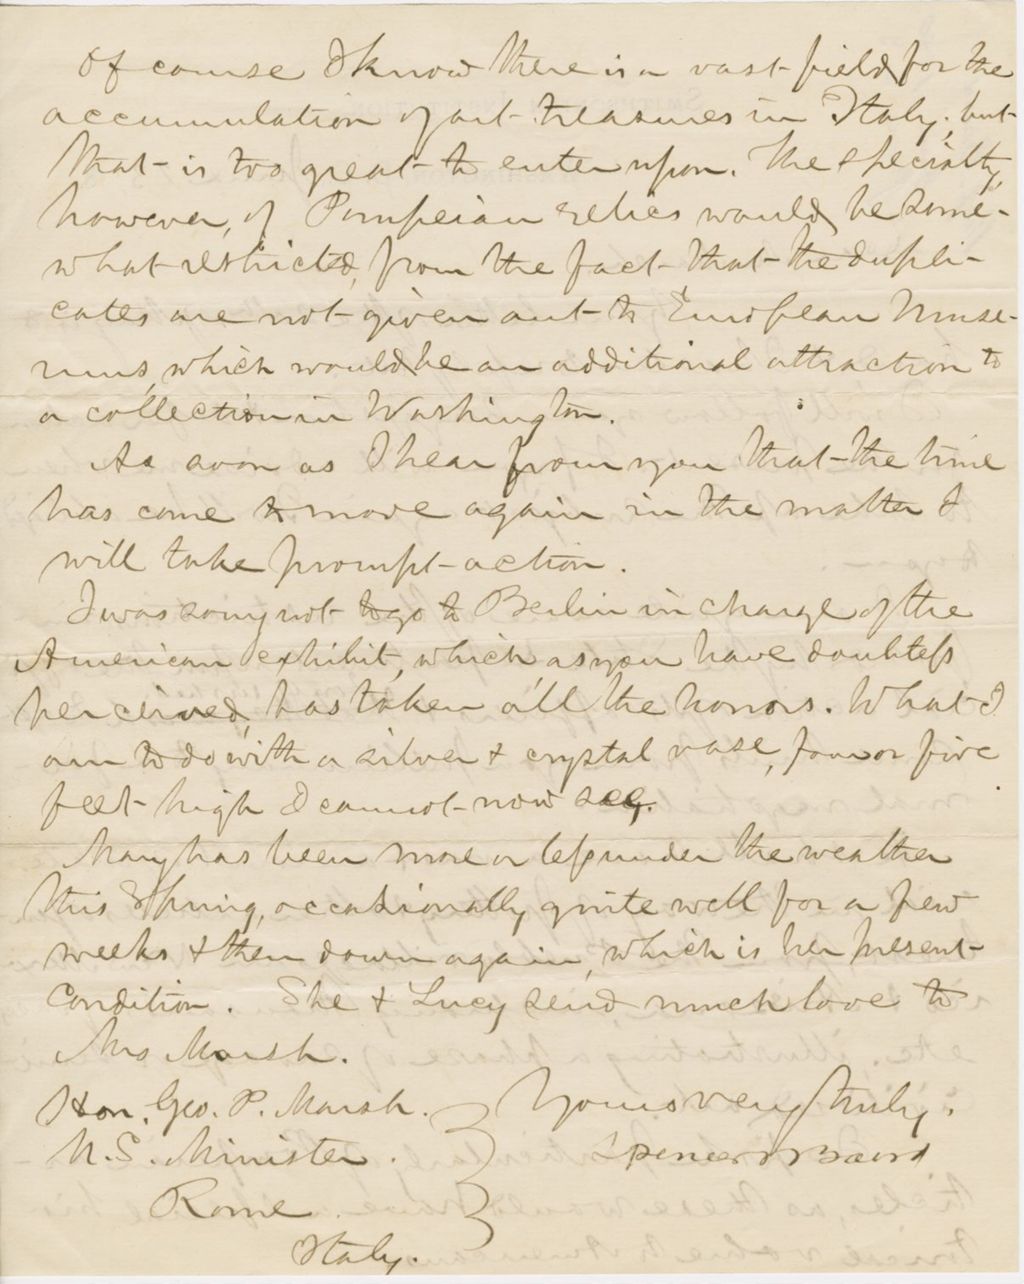 Of course I know there is a vast field for the
accumulation of art treasures in Italy; but
that is too great to enter upon. The specialty,
however, of Pompeian relics would be some-
what restricted, from the fact that the dupli-
cates are not given out to European Muse-
ums, which would be an additional attraction to
a collection in Washington.
As soon as I hear from you that the time
has come to move again in the matter I
will take prompt action.
I was sorry not to go to Berlin in charge of the
American exhibit, which as you have doubtless
perceived, has taken all the honors. What I
am to do with a silver & crystal vase, four or five
feet high I cannot now see.
Mary has been more or less under the weather
this Spring, occasionally quite well for a few
weeks & then down again, which is her present
condition. She & Lucy send much love to
Mrs Marsh.
Hon. Geo. P. Marsh. Yours very truly,
U.S. Minister. Spencer F Baird
Rome.
Italy.